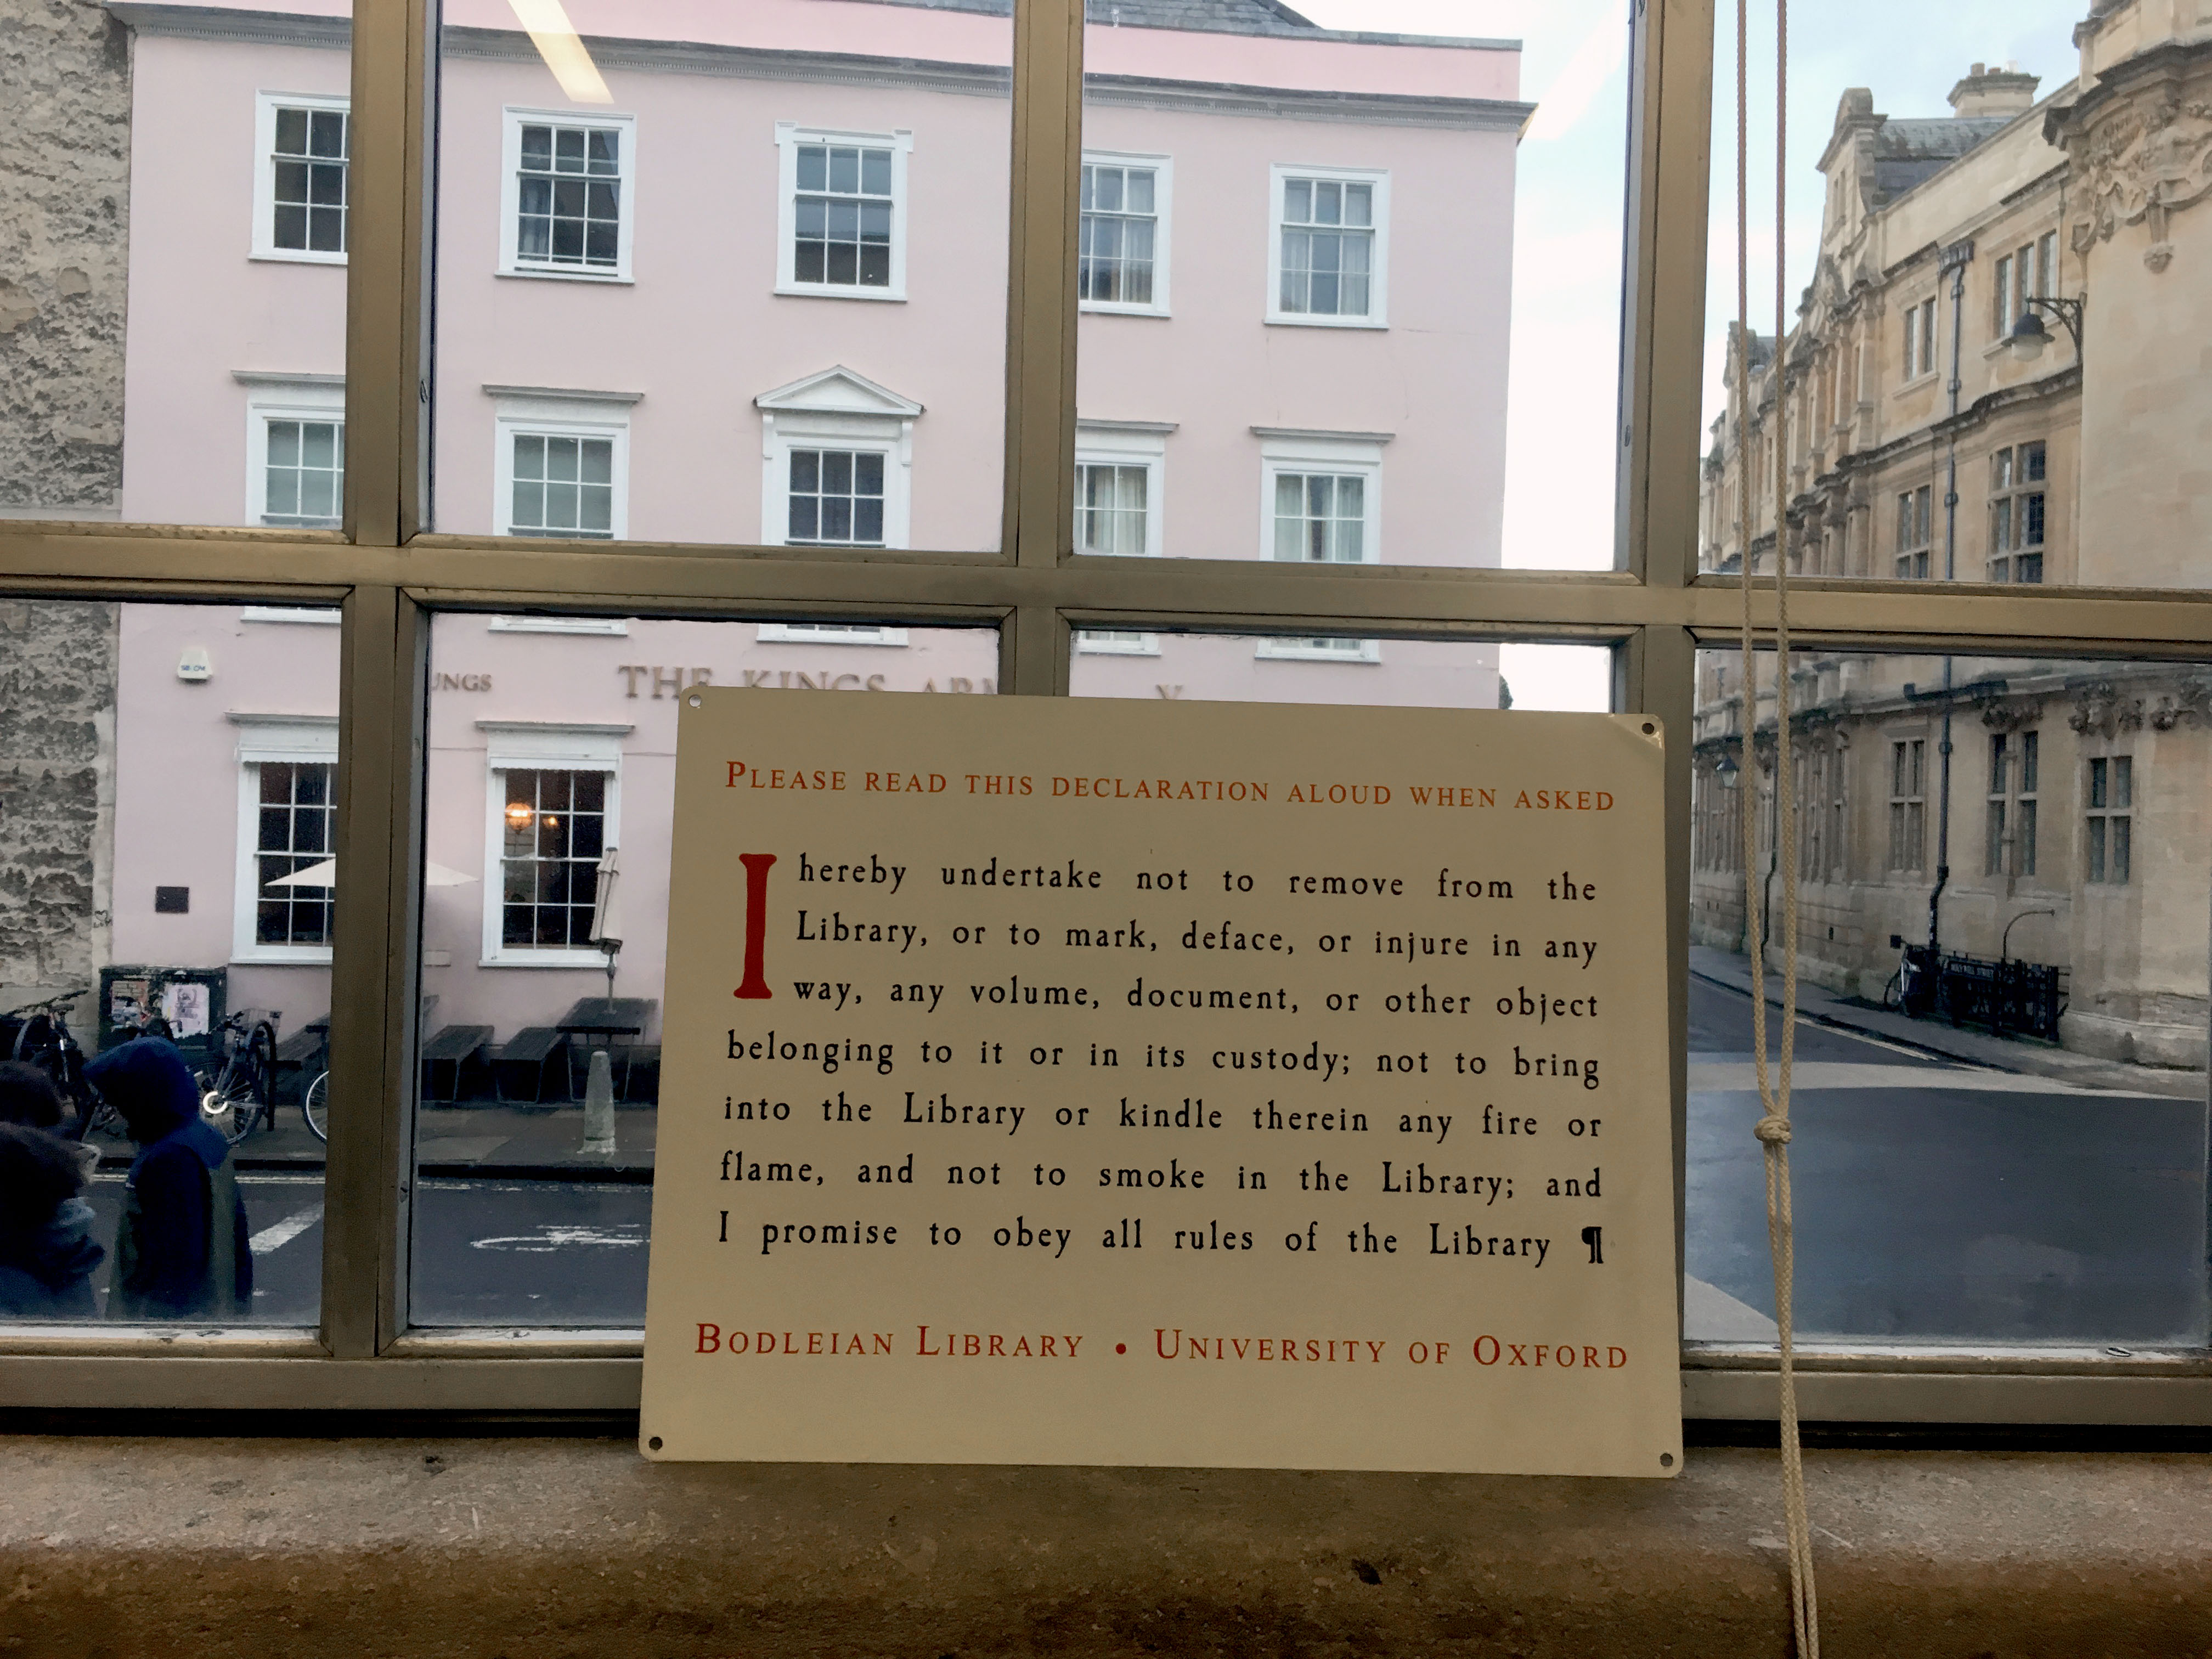 THE KINGS
PLEASE READ THIS DECLARATION ALOUD WHEN ASKED
I hereby undertake not to remove from the
Library, or to mark, deface, or injure in any
way, any volume, document, or other object
belonging to it or in its custody; not to bring
into the Library or kindle therein any fire or
flame, and not to smoke in the Library; and
I promise to obey all rules of the Library ¶
BODLEIAN LIBRARY • UNIVERSITY OF OXFORD
HOLYWELL STREET